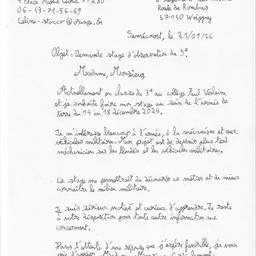 06-43-71-56-69
57150 Woippy
Objet: Demande stage d'observation de 3e
Madame, Monsieur
Actuellement en classe de 3e au collège Paul Verlaine
et je souhaite faire mon stage au sein de l'armée de
terre du 14 au 18 décembre 2026.
Je m'intéresse beaucoup à l'armée, à la mécanique et aux
véhicules militaires. Mon projet est de devenir plus tard
mécanicien sur les blindés et les véhicules militaires.
Ce stage me permettrait de découvrir ce métier et de mieux
connaître le milieu militaire.
Je suis sérieux, motivé et curieux d'apprendre. Je reste
à votre disposition pour toute autre information me
concernant.
Dans l'attente d'une réponse que j'espère favorable, je vous